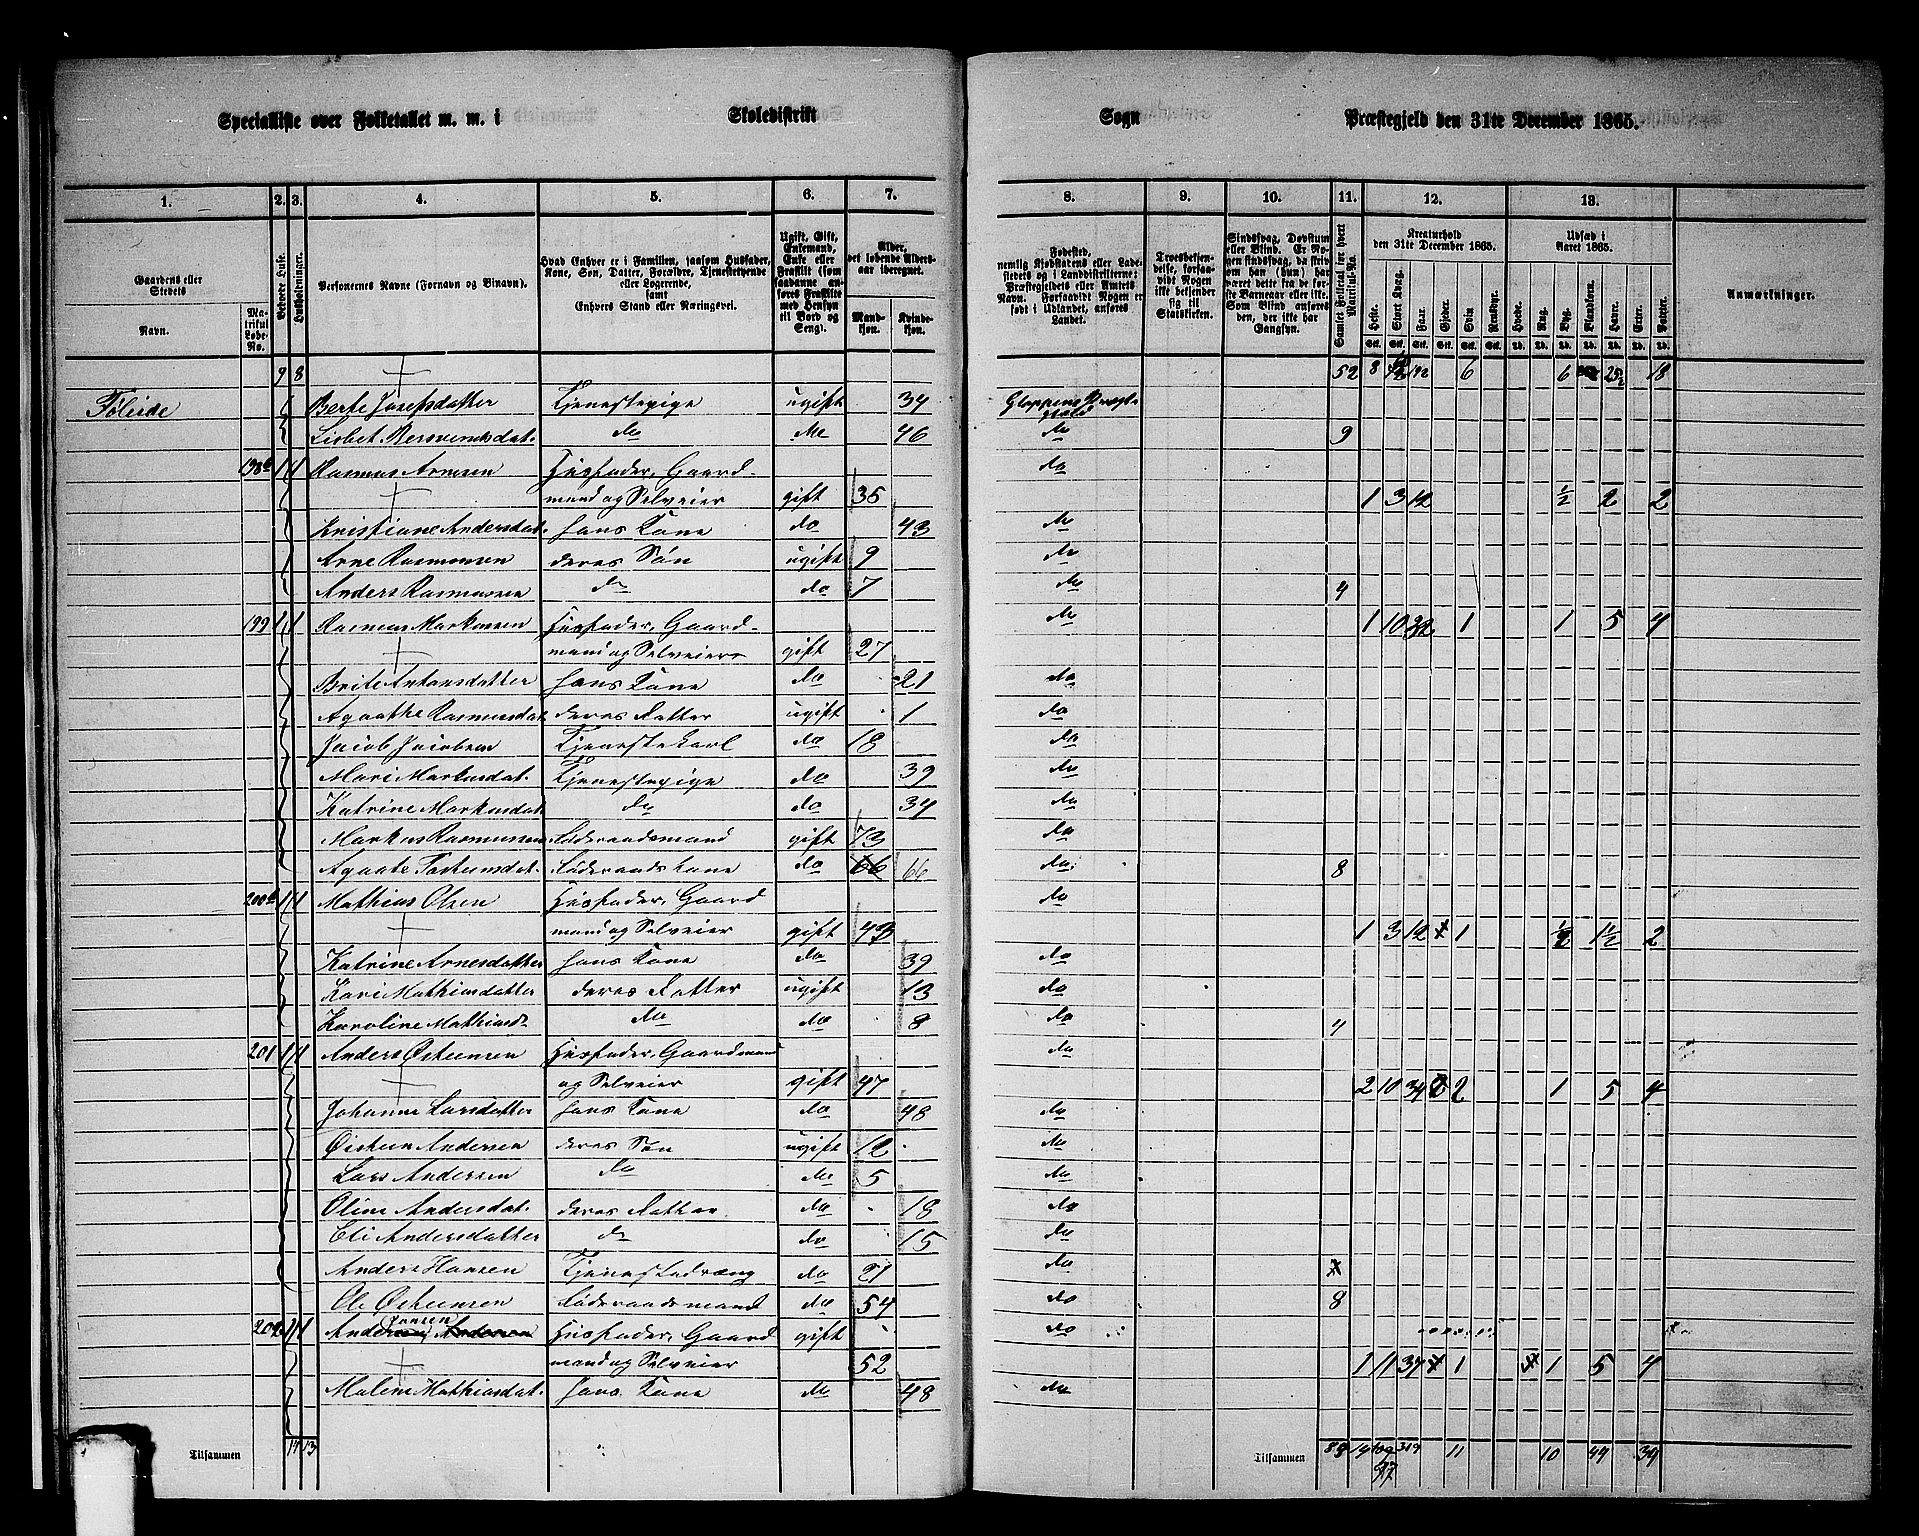 Specialliste over Folketallet m. m. i Skoledistrikt Sogn Præstegjeld den 31te December 1865.
1. 2. 3. 4. 5. 6. 7. 8. 9. 10. 11. 12. 13.
Gaardens eller Stedets Navn.
Matrikul Løbe-No.
Beboede Huse.
Husholdninger.
Personernes Navne (Fornavn og Binavn).
Hvad Enhver er i Familien, saasom Husfader, Kone, Søn, Datter, Forældre, Tjenestetyende eller Logerende, samt Enhvers Stand eller Næringsvei.
Ugift, Gift, Enkemand, Enke eller Fraskilt (som saadanne anføres Fraskilte med Hensyn til Bord og Seng).
Alder, det løbende Alders-aar iberegnet.
Mand-kjøn. Kvinde-kjøn.
Fødested, nemlig Kjøbstadens eller Ladestedets eller i Landdistrikterne: Præstegjeldets eller Amtets Navn. Forsaavidt Nogen er født i Udlandet, anføres Landet.
Troesbekjendelse, forsaavidt Nogen ikke bekjender sig til Statskirken.
Sindssvag, Døvstum eller Blind. Er Nogen sindssvag, da skrives om han (hun) har været dette fra de første Barneaar eller ikke. Som Blind anføres den, der ikke har Gangsyn.
Samlet Folketal for hvert Matrikul-No.
Kreaturhold den 31te December 1865.
Heste. Stort Kvæg. Faar. Gjeder. Sviin. Rensdyr.
Udsæd i Aaret 1865.
Hvede. Rug. Byg. Blandkorn. Havre. Erter. Poteter.
Anmærkninger.
9 8 52 8 6 6 18
Føleide Berte Josefsdatter Tjenestepige ugift 34 Gloppens Præstegjeld
Lisbet do do 46 do 9
198 1 1 Rasmus Arnesen Husfader, Gaard- do
mand og Selveier gift 35 1 3 12 ½ 2 2
Kristiane Andersdat. hans Kone do 43 do
Arne Rasmussen deres Søn ugift 9 do
Anders Rasmussen do do 7 do 4
199 1 1 Rasmus Markussen Husfader, Gaard- do 1 10 32 1 1 5 4
mand og Selveier gift 27
Brite Antonsdatter hans Kone do 21 do
Agathe Rasmusdat. deres Datter ugift 1 do
Jacob Jacobsen Tjenestekarl do 18 do
Mari Markusdat. Tjenestepige do 39 do
Katrine Markusdat. do do 34 do
Markus Rasmussen Føderaadsmand gift 73 do
Agaate Føderaadskone do 66 66 do 8
200 1 1 Mathias Olsen Husfader, Gaard do
mand og Selveier gift 43 1 3 12 1 ½ 1½ 2
Katrine Arnesdatter hans Kone do 39 do
Kari Mathiasdatter deres Datter ugift 13 do
Karoline Mathiasd. do do 8 do 4
201 1 1 Anders Østeensen Husfader, Gaardmand do
og Selveier gift 47 2 10 34 2 1 5 4
Johanne Larsdatter hans Kone do 48 do
Østeen Andersen deres Søn ugift 12 do
Lars Andersen do do 5 do
Oline Andersdat. deres Datter do 18 do
Eli Andersdatter do do 15 do
Anders Hansen Tjenestedræng do 21 do
Ole Østeensen Føderaadsmand do 54 do 8
202 1 1 Anders Jonsen Husfader, Gaard gift do
mand og Selveier 52 1 11 34 1 1 5 4
Malene Mathiasdat. hans Kone do 48 do
Tilsammen 14 13 Tilsammen 88 14 109 319 11 10 44 34
97